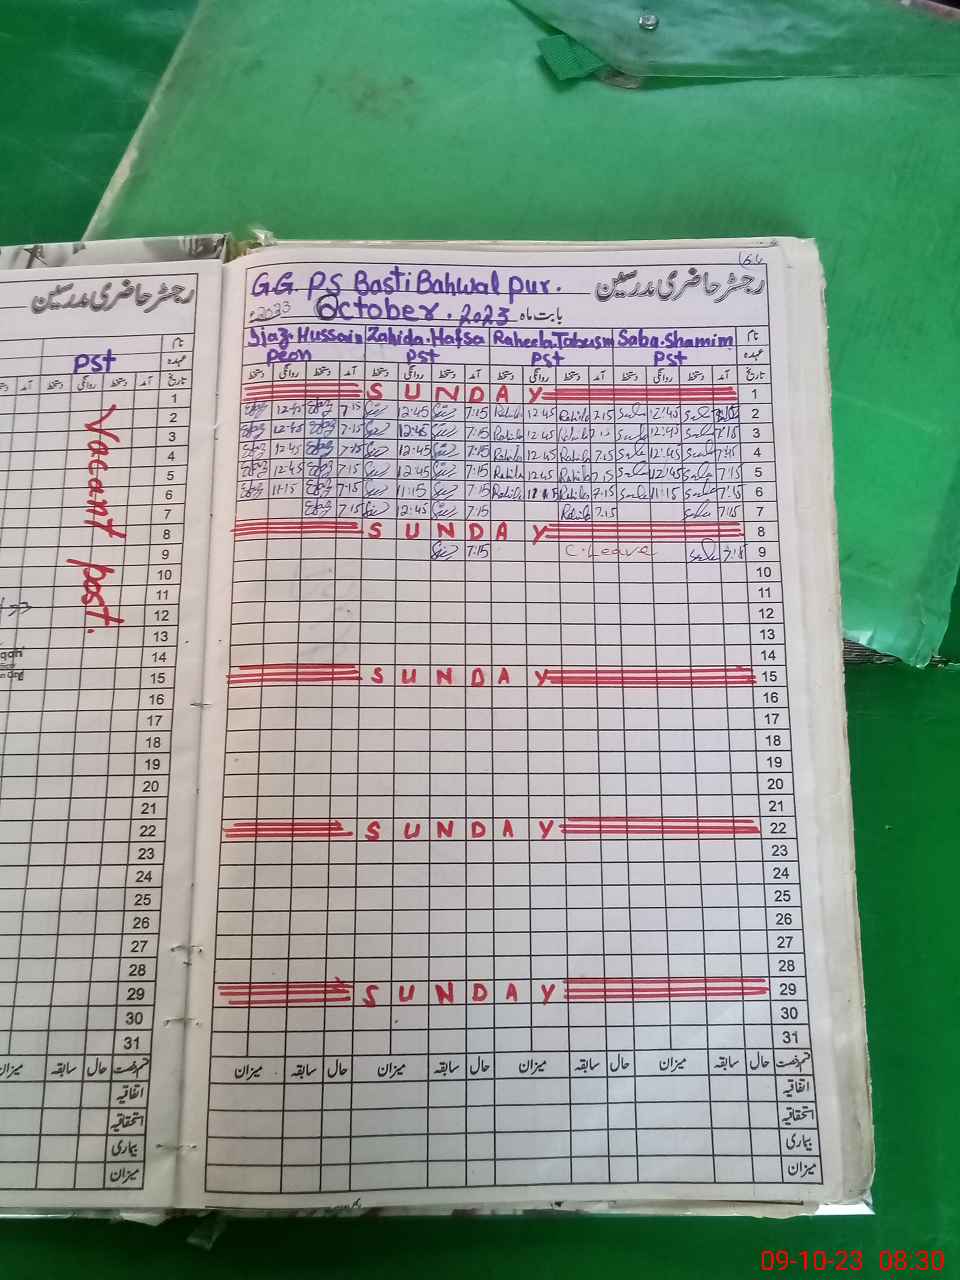 رجسٹر حاضری مدرسین
نام
عہدہ
PST
تاریخ آمد دستخط روانگی دستخط آمد
1
2
3
4
5
6
7
8
9
10
11
12
13
14
15
16
17
18
19
20
21
22
23
24
25
26
27
28
29
30
31
Vacant post.
حال سابقہ میزان
اتفاقیہ
استحقاقیہ
بیماری
میزان
G.G. P.S Basti Bahwal pur. رجسٹر حاضری مدرسین
2023 October. 2023 بابت ماہ
Ijaz. Hussain Zahida. Hafsa Raheela. Tabusm Saba. Shamim نام
peon Pst Pst Pst عہدہ
دستخط روانگی دستخط آمد دستخط روانگی دستخط آمد دستخط روانگی دستخط آمد دستخط روانگی دستخط آمد تاریخ
SUNDAY 1
12:45 7:15 12:45 7:15 Rahila 12:45 Rahila 7:15 12:45 2
12:45 7:15 12:45 7:15 Rahila 12:45 Rahila 7:15 12:45 7:15 3
12:45 7:15 12:45 7:15 Rahila 12:45 Rahila 7:15 12:45 7:15 4
12:45 7:15 12:45 7:15 Rahila 12:45 Rahila 7:15 12:45 7:15 5
11:15 7:15 11:15 7:15 Rahila 11:15 Rahila 7:15 11:15 7:15 6
7:15 12:45 7:15 Rahila 7:15 7:15 7
SUNDAY 8
7:15 C. Leave 7:15 9
10
11
12
13
14
SUNDAY 15
16
17
18
19
20
21
SUNDAY 22
23
24
25
26
27
28
SUNDAY 29
30
31
میزان سابقہ حال میزان سابقہ حال میزان سابقہ حال میزان سابقہ حال قسم رخصت
اتفاقیہ
استحقاقیہ
بیماری
میزان
09-10-23 08:30